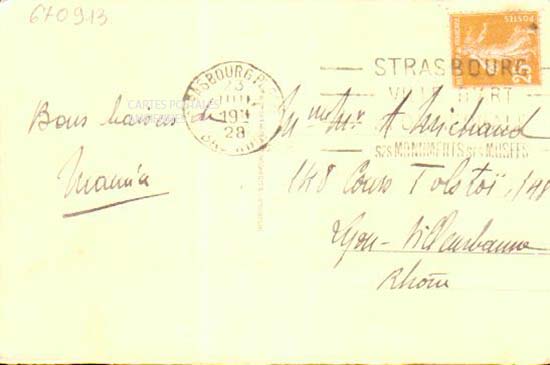 670913
STRASBOURG
VILLE D'ART
SES MONUMENTS SES MUSÉES
STRASBOURG
23
19
28
POSTES
25
CARTES POSTALES
Bons baisers de
Mamia
Mme Mr A Michaud
148 Cours Tolstoï, 148
Lyon-Villeurbanne
Rhône